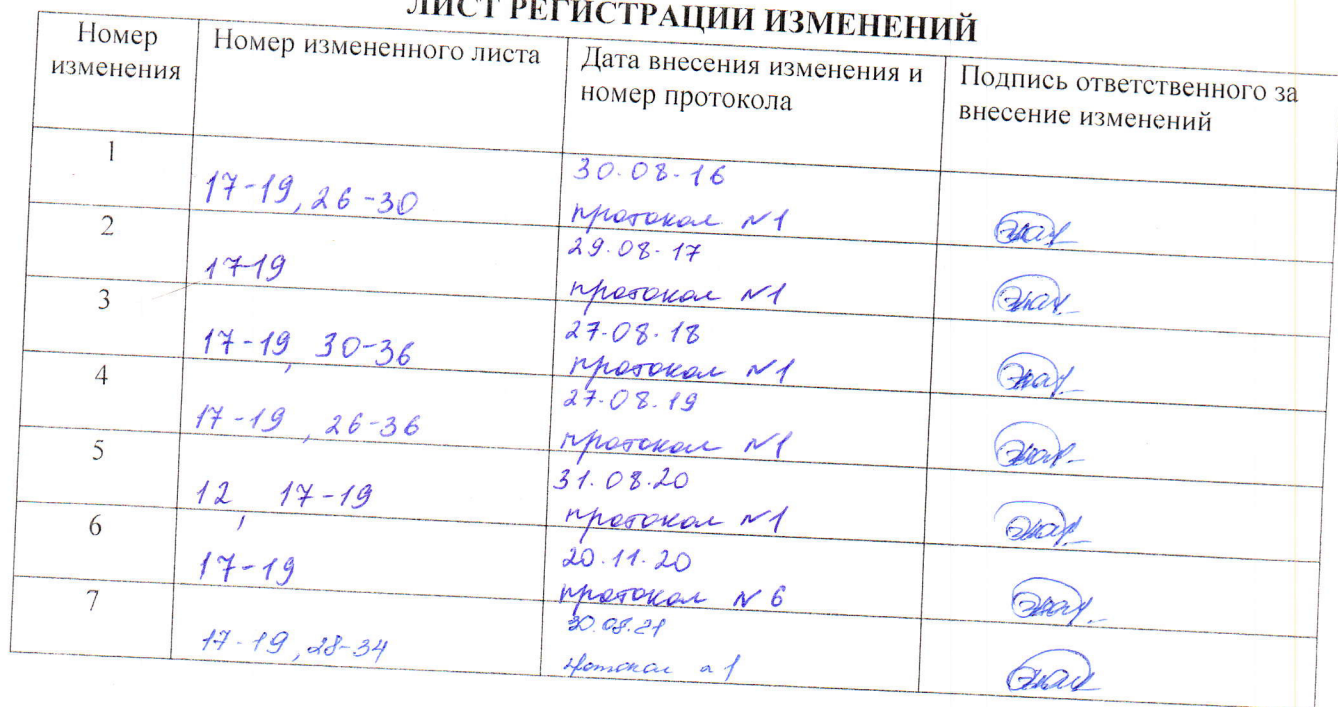 ЛИСТ РЕГИСТРАЦИИ ИЗМЕНЕНИЙ
Номер изменения
Номер измененного листа
Дата внесения изменения и номер протокола
Подпись ответственного за внесение изменений
1
17-19, 26-30
30.08.16
протокол №1
2
17-19
29.08.17
протокол №1
3
17-19, 30-36
27.08.18
протокол №1
4
17-19, 26-36
27.08.19
протокол №1
5
12, 17-19
31.08.20
протокол №1
6
17-19
20.11.20
протокол № 6
7
17-19, 28-34
30.08.21